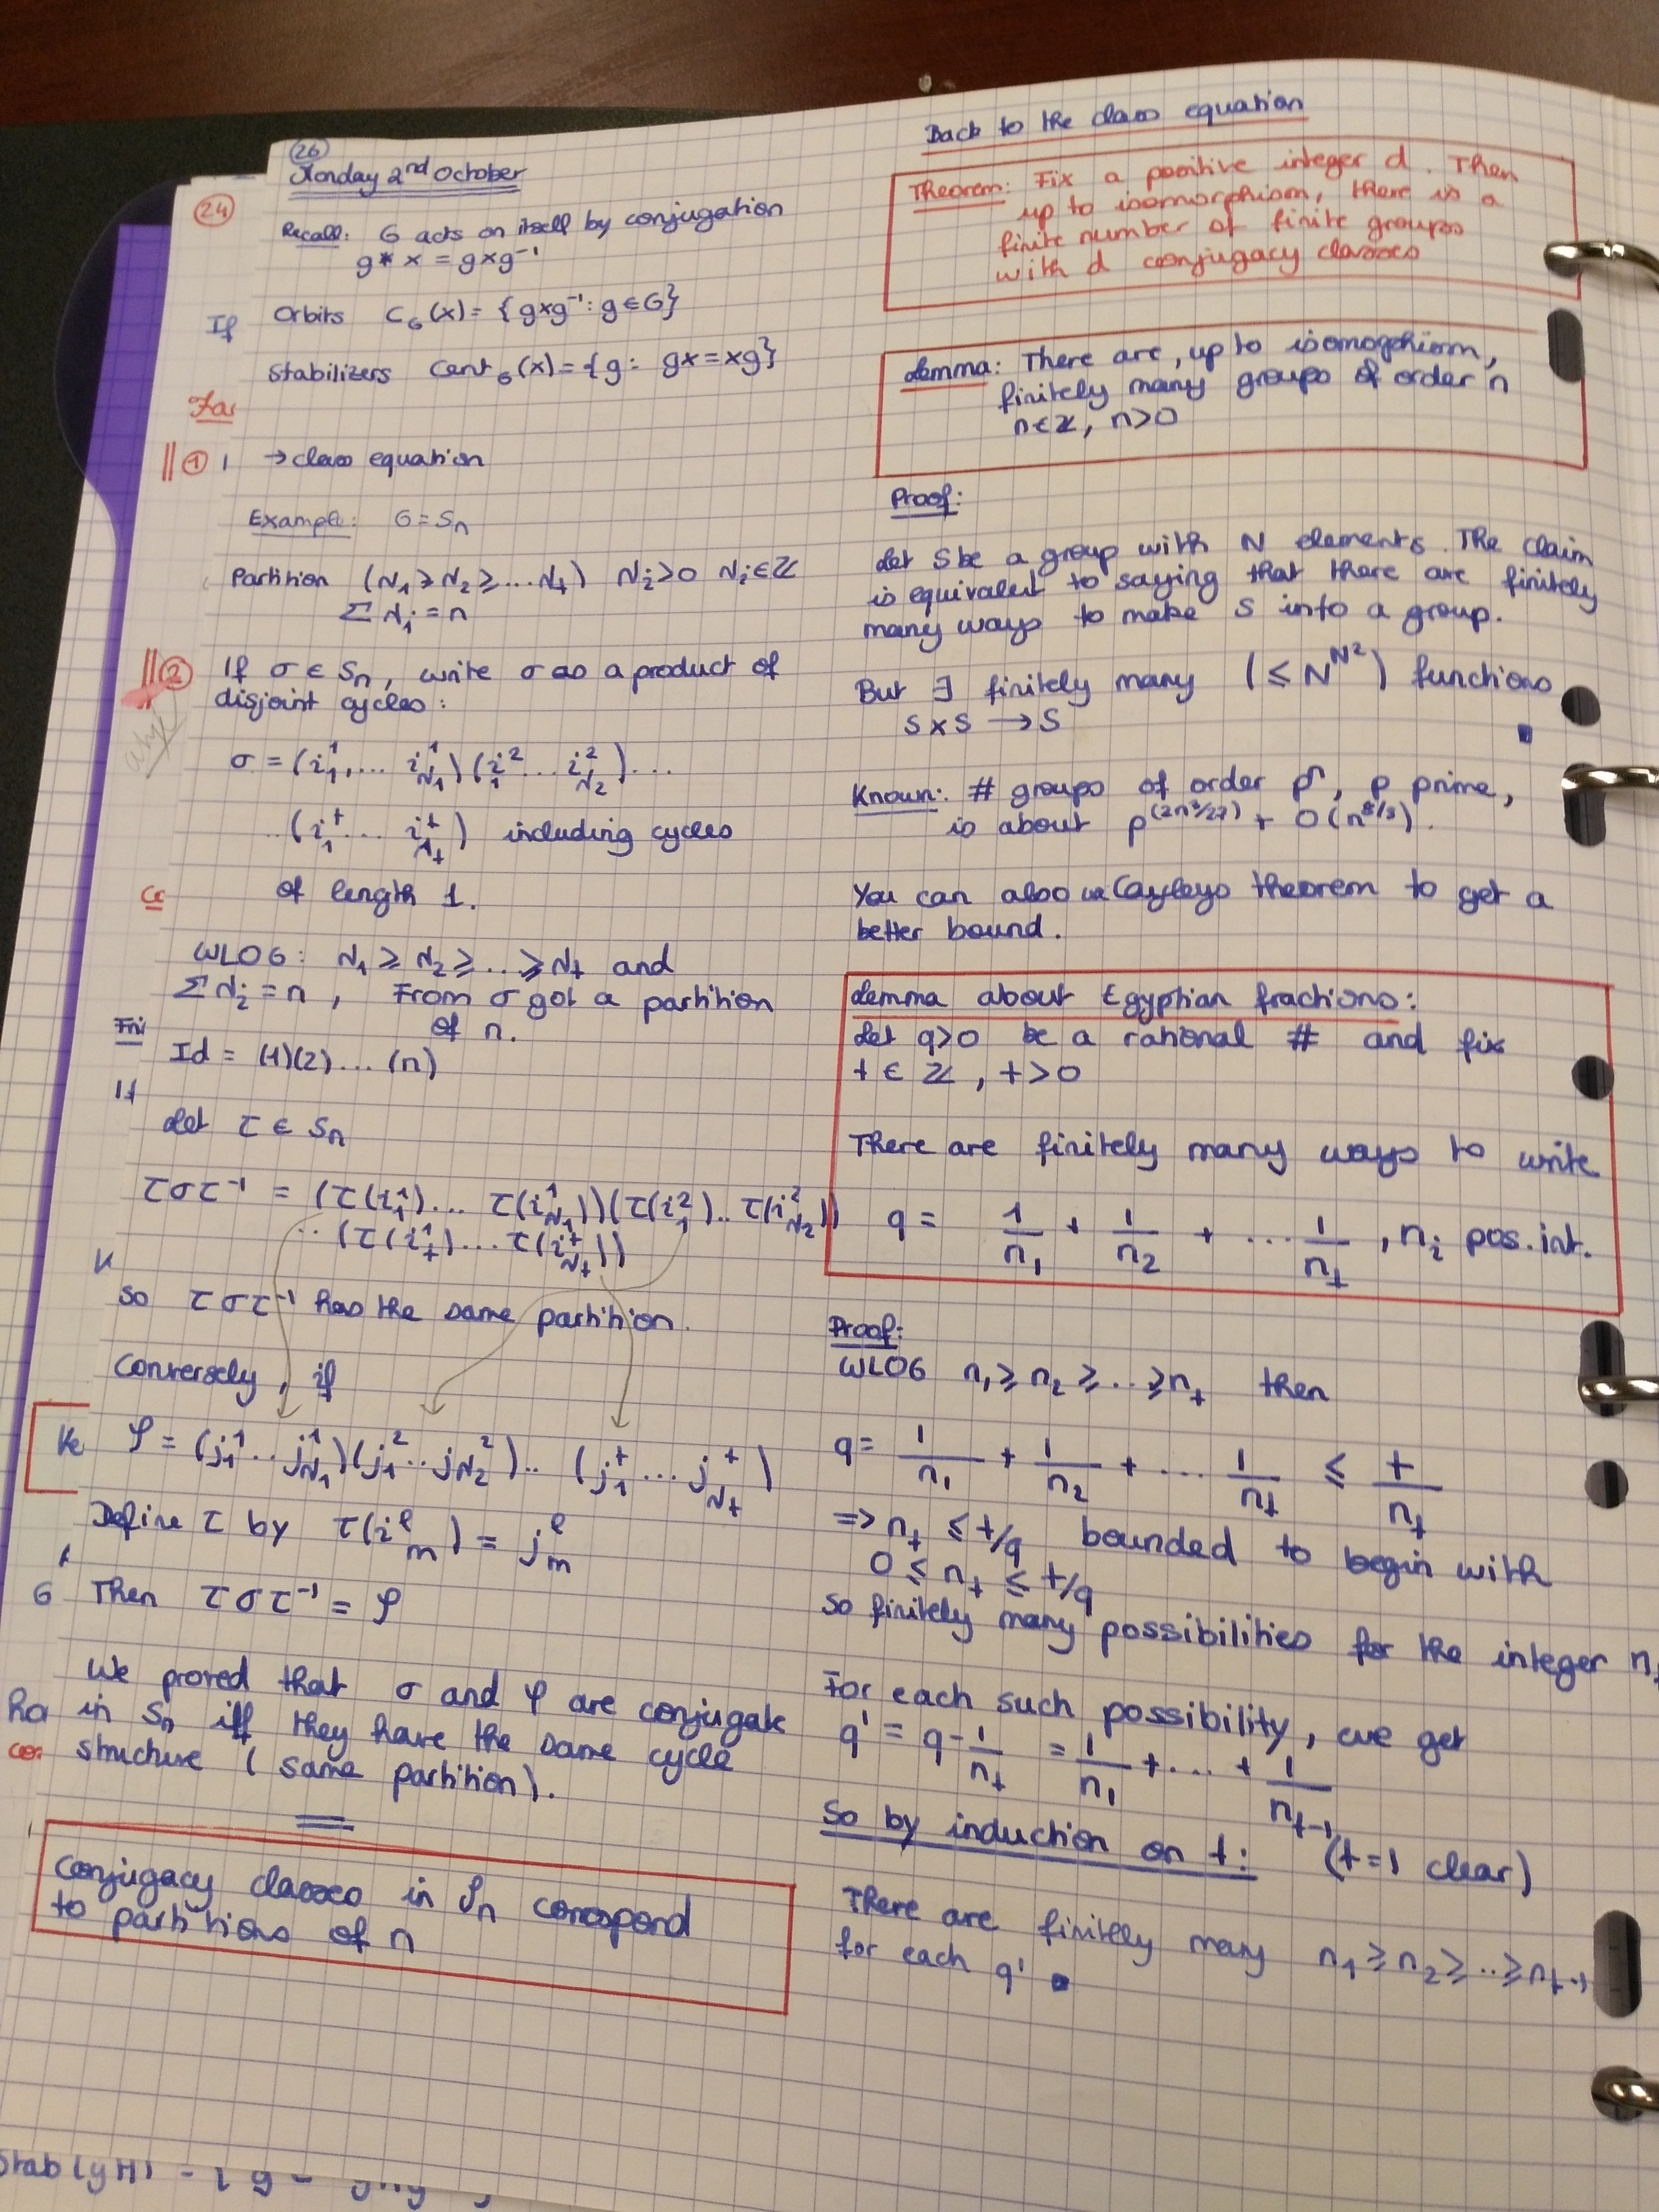 26
Monday 2nd October
24
Recall: G acts on itself by conjugation
g * x = gxg⁻¹
If
Orbits C_G(x) = {gxg⁻¹ : g ∈ G}
Stabilizers Cent_G(x) = {g : gx = xg}
Fac
① → class equation
Example: G = Sₙ
Partition (N₁ ≥ N₂ ≥ ... Nₜ) Nᵢ > 0 Nᵢ ∈ ℤ
Σ Nᵢ = n
② If σ ∈ Sₙ, write σ as a product of
disjoint cycles :
why?
σ = (i₁¹, ... i_{N₁}¹)(i₁² ... i_{N₂}²) ...
.. (i₁ᵗ ... i_{Nₜ}ᵗ) including cycles
of length 1.
WLOG : N₁ ≥ N₂ ≥ ... ≥ Nₜ and
Σ Nᵢ = n , From σ got a partition
of n.
Id = (1)(2) ... (n)
If
Let τ ∈ Sₙ
τστ⁻¹ = (τ(i₁¹) ... τ(i_{N₁}¹))(τ(i₁²) .. τ(i_{N₂}²))
.. (τ(iₜ¹) ... τ(i_{Nₜ}ᵗ))
So τστ⁻¹ has the same partition.
Conversely, if
φ = (j₁¹ .. j_{N₁}¹)(j₁² .. j_{N₂}²) .. (j₁ᵗ ... j_{Nₜ}ᵗ)
Define τ by τ(i_m^ℓ) = j_m^ℓ
G Then τστ⁻¹ = φ
We proved that σ and φ are conjugate
in Sₙ iff they have the same cycle
structure (same partition).
Conjugacy classes in Sₙ correspond
to partitions of n
Back to the class equation
Theorem: Fix a positive integer d. Then
up to isomorphism, there is a
finite number of finite groups
with d conjugacy classes
Lemma: There are, up to isomorphism,
finitely many groups of order n
n ∈ ℤ, n > 0
Proof:
Let S be a group with N elements. The claim
is equivalent to saying that there are finitely
many ways to make S into a group.
But ∃ finitely many (≤ N^{N²}) functions
S x S → S
Known: # groups of order pⁿ, p prime,
is about p^(2n³/27) + O(n^{8/3}).
You can also use Cayleys theorem to get a
better bound.
Lemma about Egyptian fractions:
Let q > 0 be a rational # and fix
t ∈ ℤ, t > 0
There are finitely many ways to write
q = 1/n₁ + 1/n₂ + ... 1/nₜ , nᵢ pos. int.
Proof:
WLOG n₁ ≥ n₂ ≥ ... ≥ nₜ then
q = 1/n₁ + 1/n₂ + ... 1/nₜ ≤ t/nₜ
=> nₜ ≤ t/q bounded to begin with
0 ≤ nₜ ≤ t/q
So finitely many possibilities for the integer nₜ
For each such possibility, we get
q' = q - 1/nₜ = 1/n₁ + ... + 1/nₜ₋₁
So by induction on t : (t=1 clear)
There are finitely many n₁ ≥ n₂ ≥ .. ≥ nₜ₋₁
for each q'